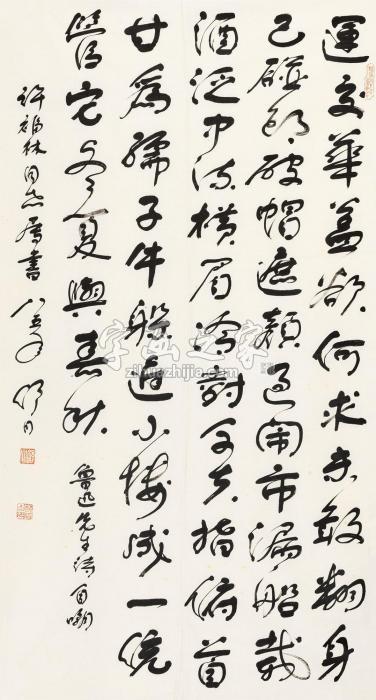 運交華蓋欲何求未敢翻身
已碰頭破帽遮顏過鬧市漏船載
酒泛中流橫眉冷對千夫指俯首
甘為孺子牛躲進小樓成一統
管它冬夏與春秋
魯迅先生詩自嘲
許福林同志屬書 八五年 舒同
字画之家
zihuazhijia.com